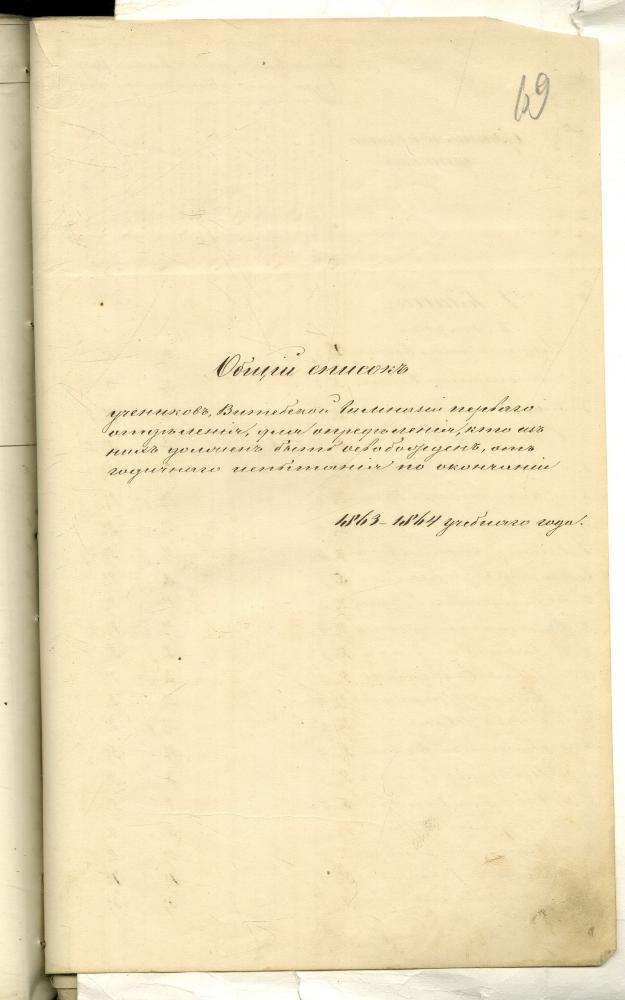 69
Общій списокъ
учениковъ, Витебской Гимназіи перваго
отдѣленія, для опредѣленія, кто изъ
нихъ долженъ быть освобожденъ, отъ
годичнаго испытанія по окончаніи
1863–1864 учебнаго года.